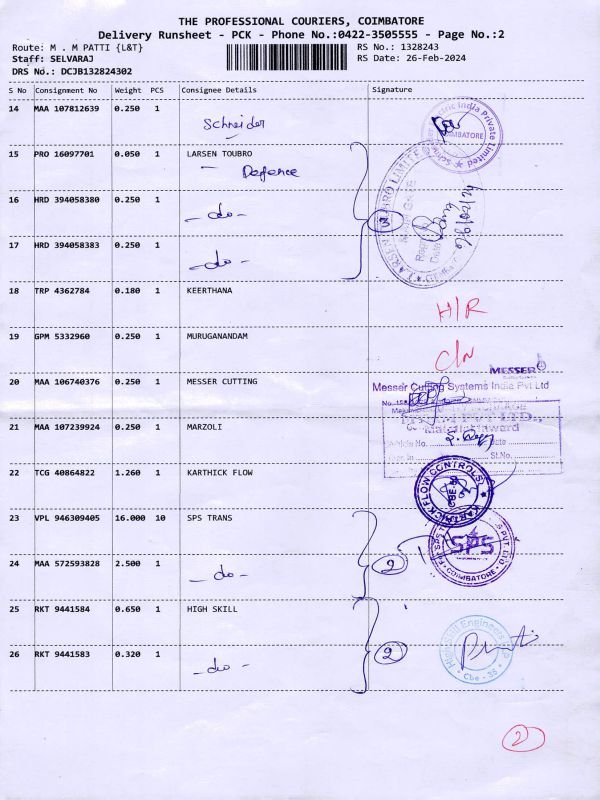 THE PROFESSIONAL COURIERS, COIMBATORE
Delivery Runsheet - PCK - Phone No.:0422-3505555 - Page No.:2
Route: M . M PATTI {L&T}
RS No.: 1328243
Staff: SELVARAJ
RS Date: 26-Feb-2024
DRS No.: DCJB132824302
S No Consignment No Weight PCS Consignee Details Signature
14 MAA 107812639 0.250 1
Schneider
15 PRO 16097701 0.050 1 LARSEN TOUBRO
Defence
16 HRD 394058380 0.250 1
- do -
3
17 HRD 394058383 0.250 1
- do -
18 TRP 4362784 0.180 1 KEERTHANA
H/R
19 GPM 5332960 0.250 1 MURUGANANDAM
C/N
20 MAA 106740376 0.250 1 MESSER CUTTING
MESSER
Messer Cutting Systems India Pvt Ltd
21 MAA 107239924 0.250 1 MARZOLI
Material Inward
22 TCG 40864822 1.260 1 KARTHICK FLOW
KARTHICK FLOW CONTROLS
23 VPL 946309405 16.000 10 SPS TRANS
SPS
COIMBATORE
24 MAA 572593828 2.500 1
- do -
2
25 RKT 9441584 0.650 1 HIGH SKILL
High Skill Engineers
Cbe - 35
26 RKT 9441583 0.320 1
- do -
2
2